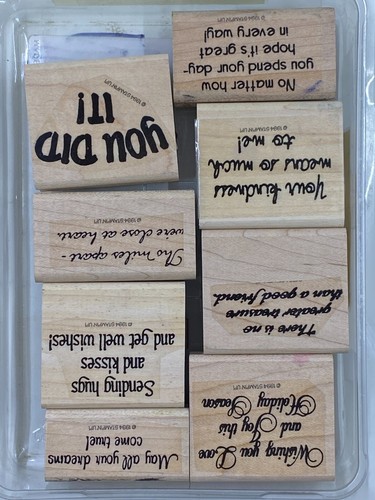 Wishing you Love
and Joy this
Holiday Season
© 1994 STAMPIN' UP!
May all your dreams
come true!
© 1994 STAMPIN' UP!
There is no
greater treasure
than a good friend.
Sending hugs
and kisses
and get well wishes!
© 1994 STAMPIN' UP!
Your kindness
means so much
to me!
© 1994 STAMPIN' UP!
Tho miles apart -
we're close at heart.
© 1994 STAMPIN' UP!
No matter how
you spend your day-
hope it's great
in every way!
© 1994 STAMPIN' UP!
YOU DID
IT!
© 1994 STAMPIN' UP!